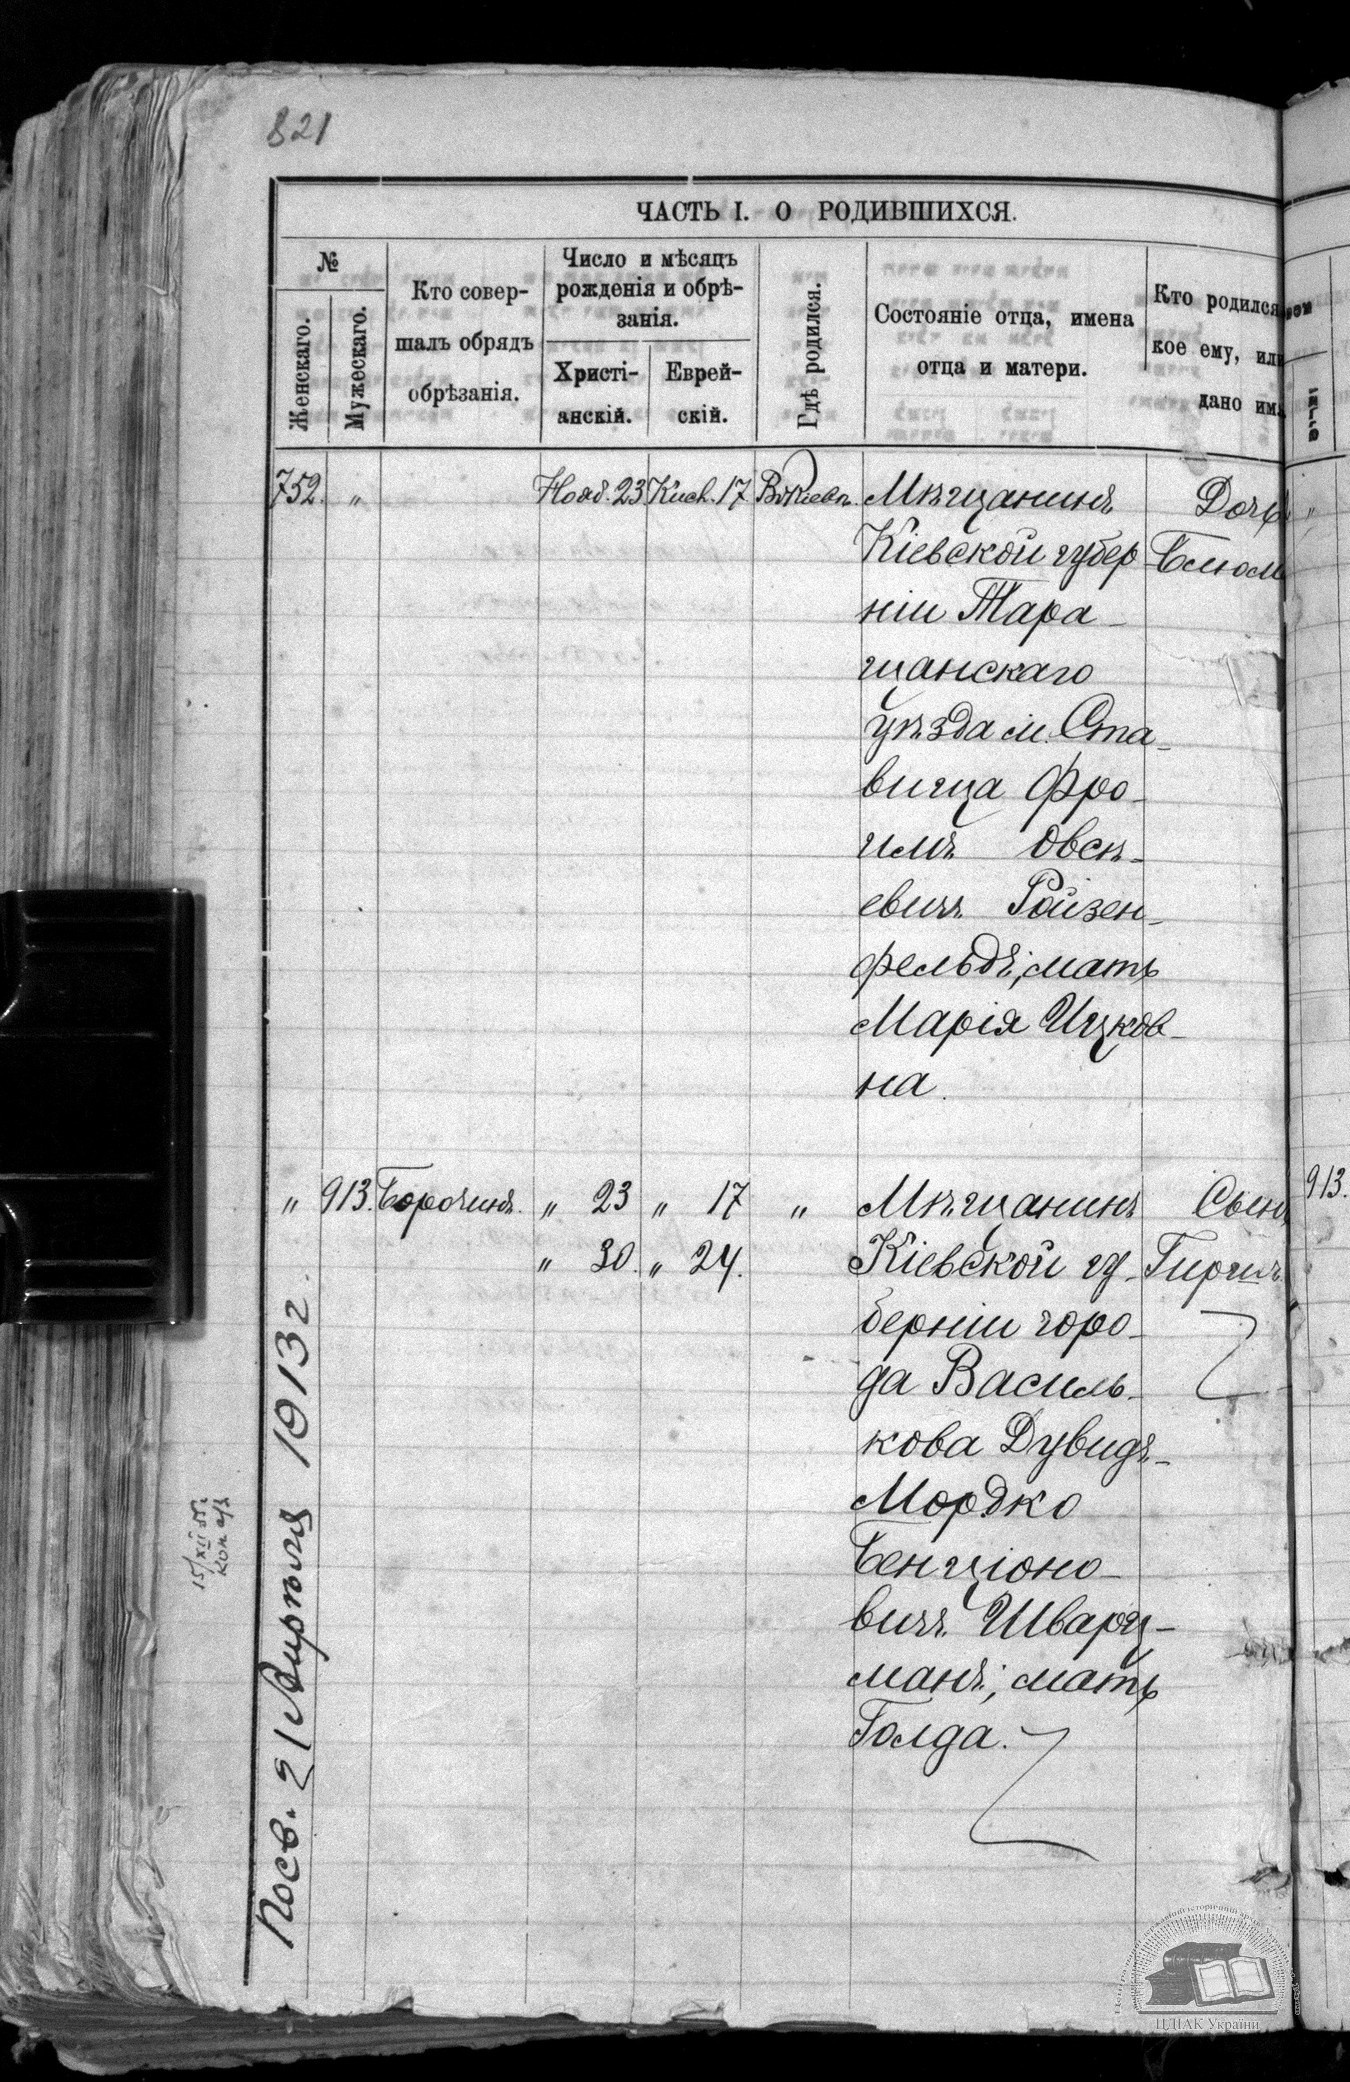 821
ЧАСТЬ I. О РОДИВШИХСЯ.
№
Женскаго.
Мужескаго.
Кто совер-
шалъ обрядъ
обрѣзанія.
Число и мѣсяцъ
рожденія и обрѣ-
занія.
Христі-
анскій.
Еврей-
скій.
Гдѣ родился.
Состояніе отца, имена
отца и матери.
Кто родился
кое ему, или
дано имя
752. „ Нояб. 23 Кисл. 17 Въ Кіевѣ. Мѣщанинъ Дочь
Кіевской губер- Блюм
ніи Тара-
щанскаго
уѣзда м. Ста-
вища Фро-
имъ Овсѣ-
евичъ Ройзен-
фельдъ; мать
Марія Ицков-
на.
„ 913. Борочинъ. „ 23 „ 17 „ Мѣщанинъ Сынъ 913.
„ 30. „ 24. Кіевской гу- Гиршъ
берніи горо-
да Василь-
кова Дувидъ-
Мордко
Бенціоно-
вичъ Шварц-
манъ; мать
Голда.
Посв. 21 Апрѣля 1913 г.
15/XII
ЦДІАК України